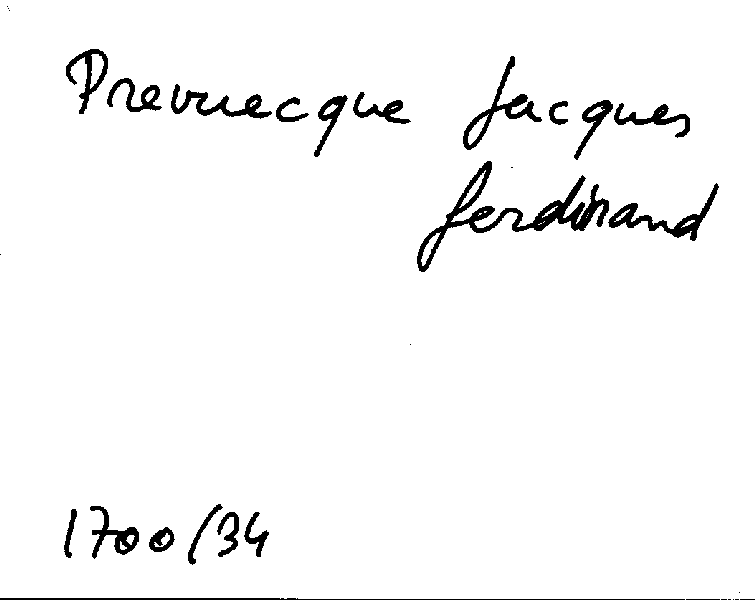 Prevuecque Jacques
ferdinand
1700/34